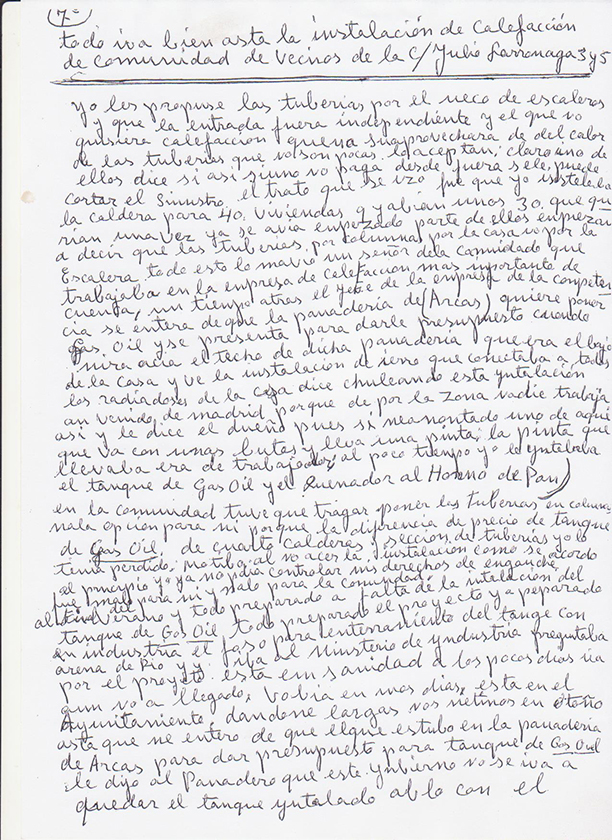 7º
todo iva bien asta la instalación de Calefacción
de Comunidad de Vecinos de la C/ Julio Larrañaga 3 y 5
yo les propuse las tuberias por el ueco de escaleras
y que la entrada fuera independiente y el que vo
quisiera calefacción que va suaprovechara de del calor
de las tuberias que vo son pocas. lo aceptan; claro uno de
ellos dice si asi si uno vo paga desde fuera sele puede
cortar el Sinustro, el trato que se izo fue que yo ystelaba
la caldera para 40. Viviendas y yabian unos 30. que qu
rian una vez ya se avia empezado parte de ellos empiezan
a decir que las tuberias, por columnas por la casa vo por la
Escalera todo esto lo mavio un señor de la comuidado que
trabajaba en la empresa de calefaccion mas inportante de
cuenca, un tiempo atras el jefe de la enpresa de la conpeten
cia se entera de que la panaderia de (Arcas) quiere poner
Gas Oil y se presenta para darle presupuesto cuando
mira acia el techo de dicha panaderia que era el bajo
de la casa y ve la instalacion de ierro que conectaba a todos
los radiadores de la casa dice chuleando esta yntalación
an venido de madrid porque de por la zona nadie trabaja
asi y le dice el dueño pues si mea montado uno de aqui
que va con unas butas y lleva una pinta; la pinta que
llevaba era de trabajador, al poco tienpo yo le yntelaba
el tanque de Gas Oil y el Quenador al Horno de Pan)
en la comunidad tuve que tragar poner las tuberias en coluna
mala opcion para mi porque la diferencia de precio de tanque
de Gas Oil. de cuarto Calderas y sección de tuberias yo lo
tenia perdido, motibo, al no acer la instalacion como se acordo
al principio yo ya no pdia controlar mis derechos de enganche,
fue malo para mi y malo para la comunidad.
al final del Verano y todo preparado a falta de la intelación del
tanque de Gas Oil, todo preparado el proyecto ya peparado
en industria el foso para enterramiento del tange con
arena de Rio y yo iva al Ministerio de yndustria preguntaba
por el proyeto esta em sanidad a los pocos dias iva
aun vo a llegado; Volvia en mas dias, esta en el
Ayuntamiento, dandone largas nos netimos en otoño
asta que ne entero de que el que estubo en la panaderia
de Arcas para dar presupuesto para tanque de Gas Ouil
le dijo al Panadero que este ynbierno vo se iva a
quedar el tanque yntalado ablo con el